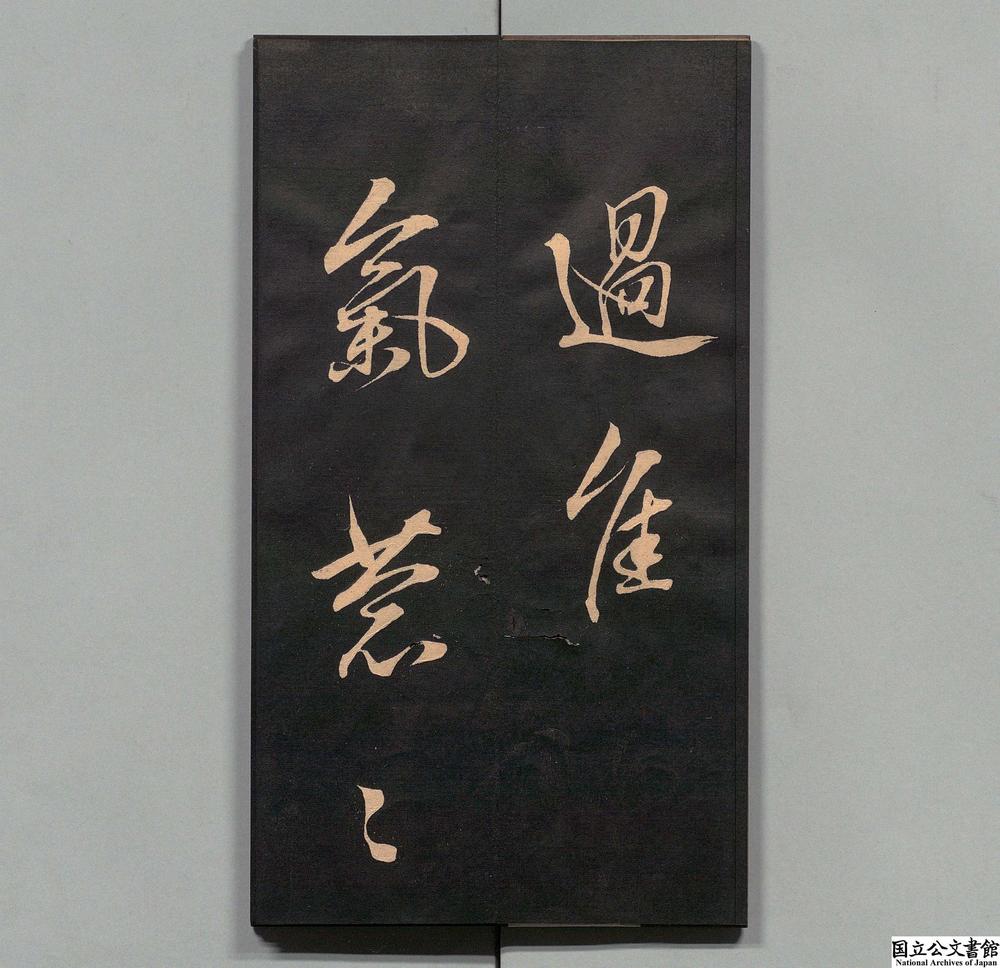 過佳
氣葱〻
国立公文書館
National Archives of Japan